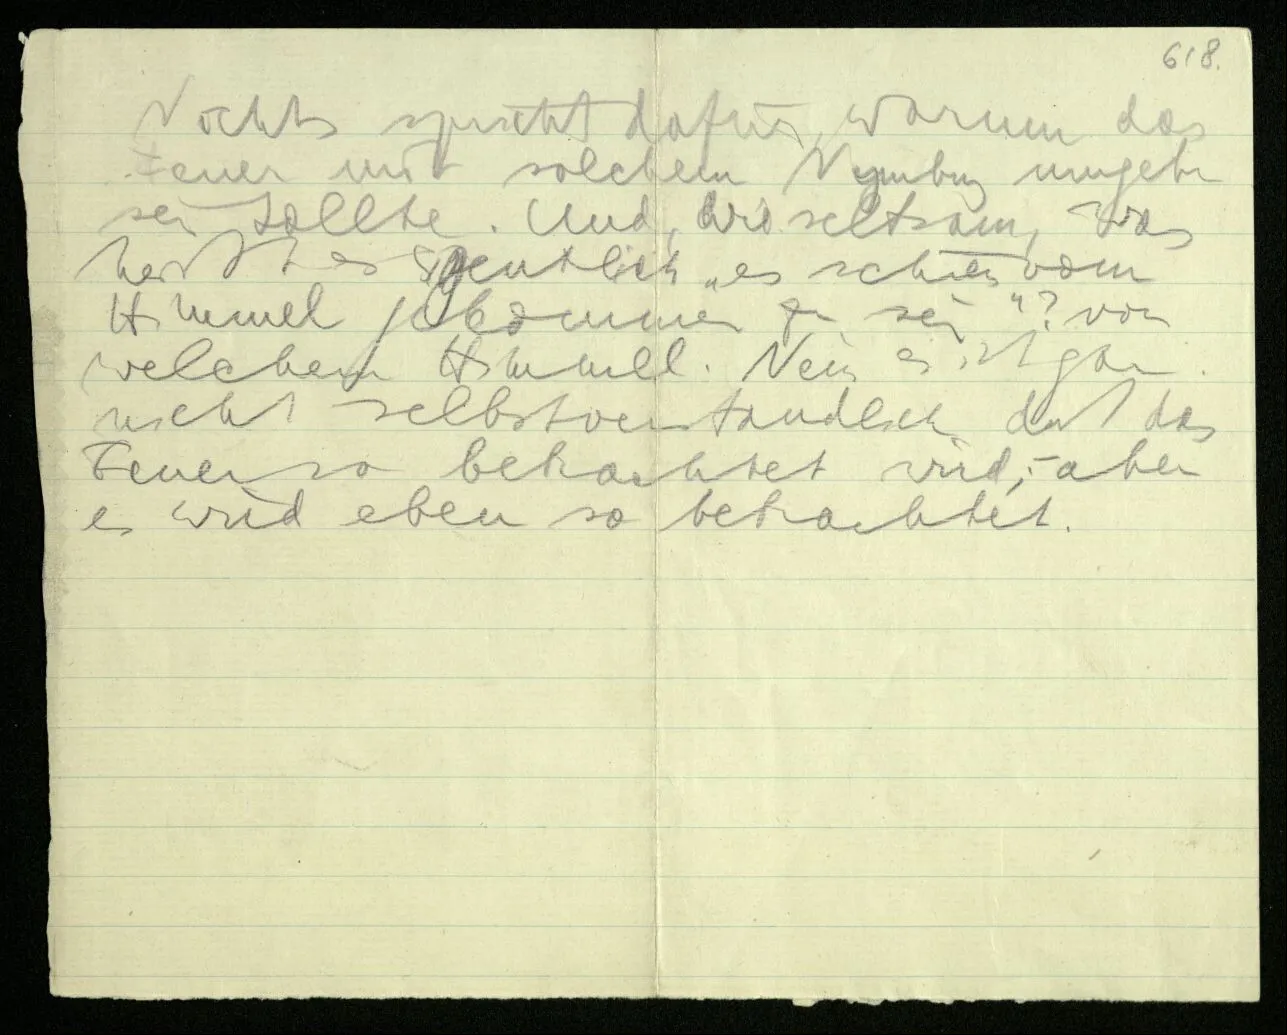 618.
Nichts spricht dafür, warum das
Feuer mit solchem Nymbus umgeben
sein sollte. Und, wie seltsam, was
heißt es eigentlich „es schien vom
Himmel gekommen zu sein“? von
welchem Himmel. Nein es ist gar
nicht selbstverständlich daß das
Feuer so betrachtet wird, – aber
es wird eben so betrachtet.